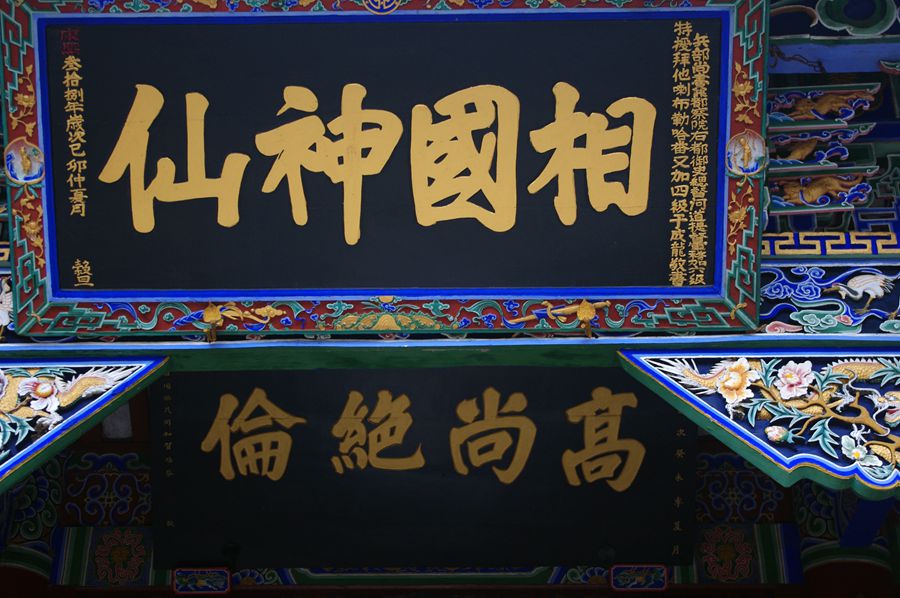 兵部尚書兼都察院右都御史總督河道提督軍務加六級
特授拜他喇布勒哈番又加四級于成龍敬書
相國神仙
康熙叁拾捌年歲次己卯仲夏月
穀旦
次癸未季夏月
高尚絕倫